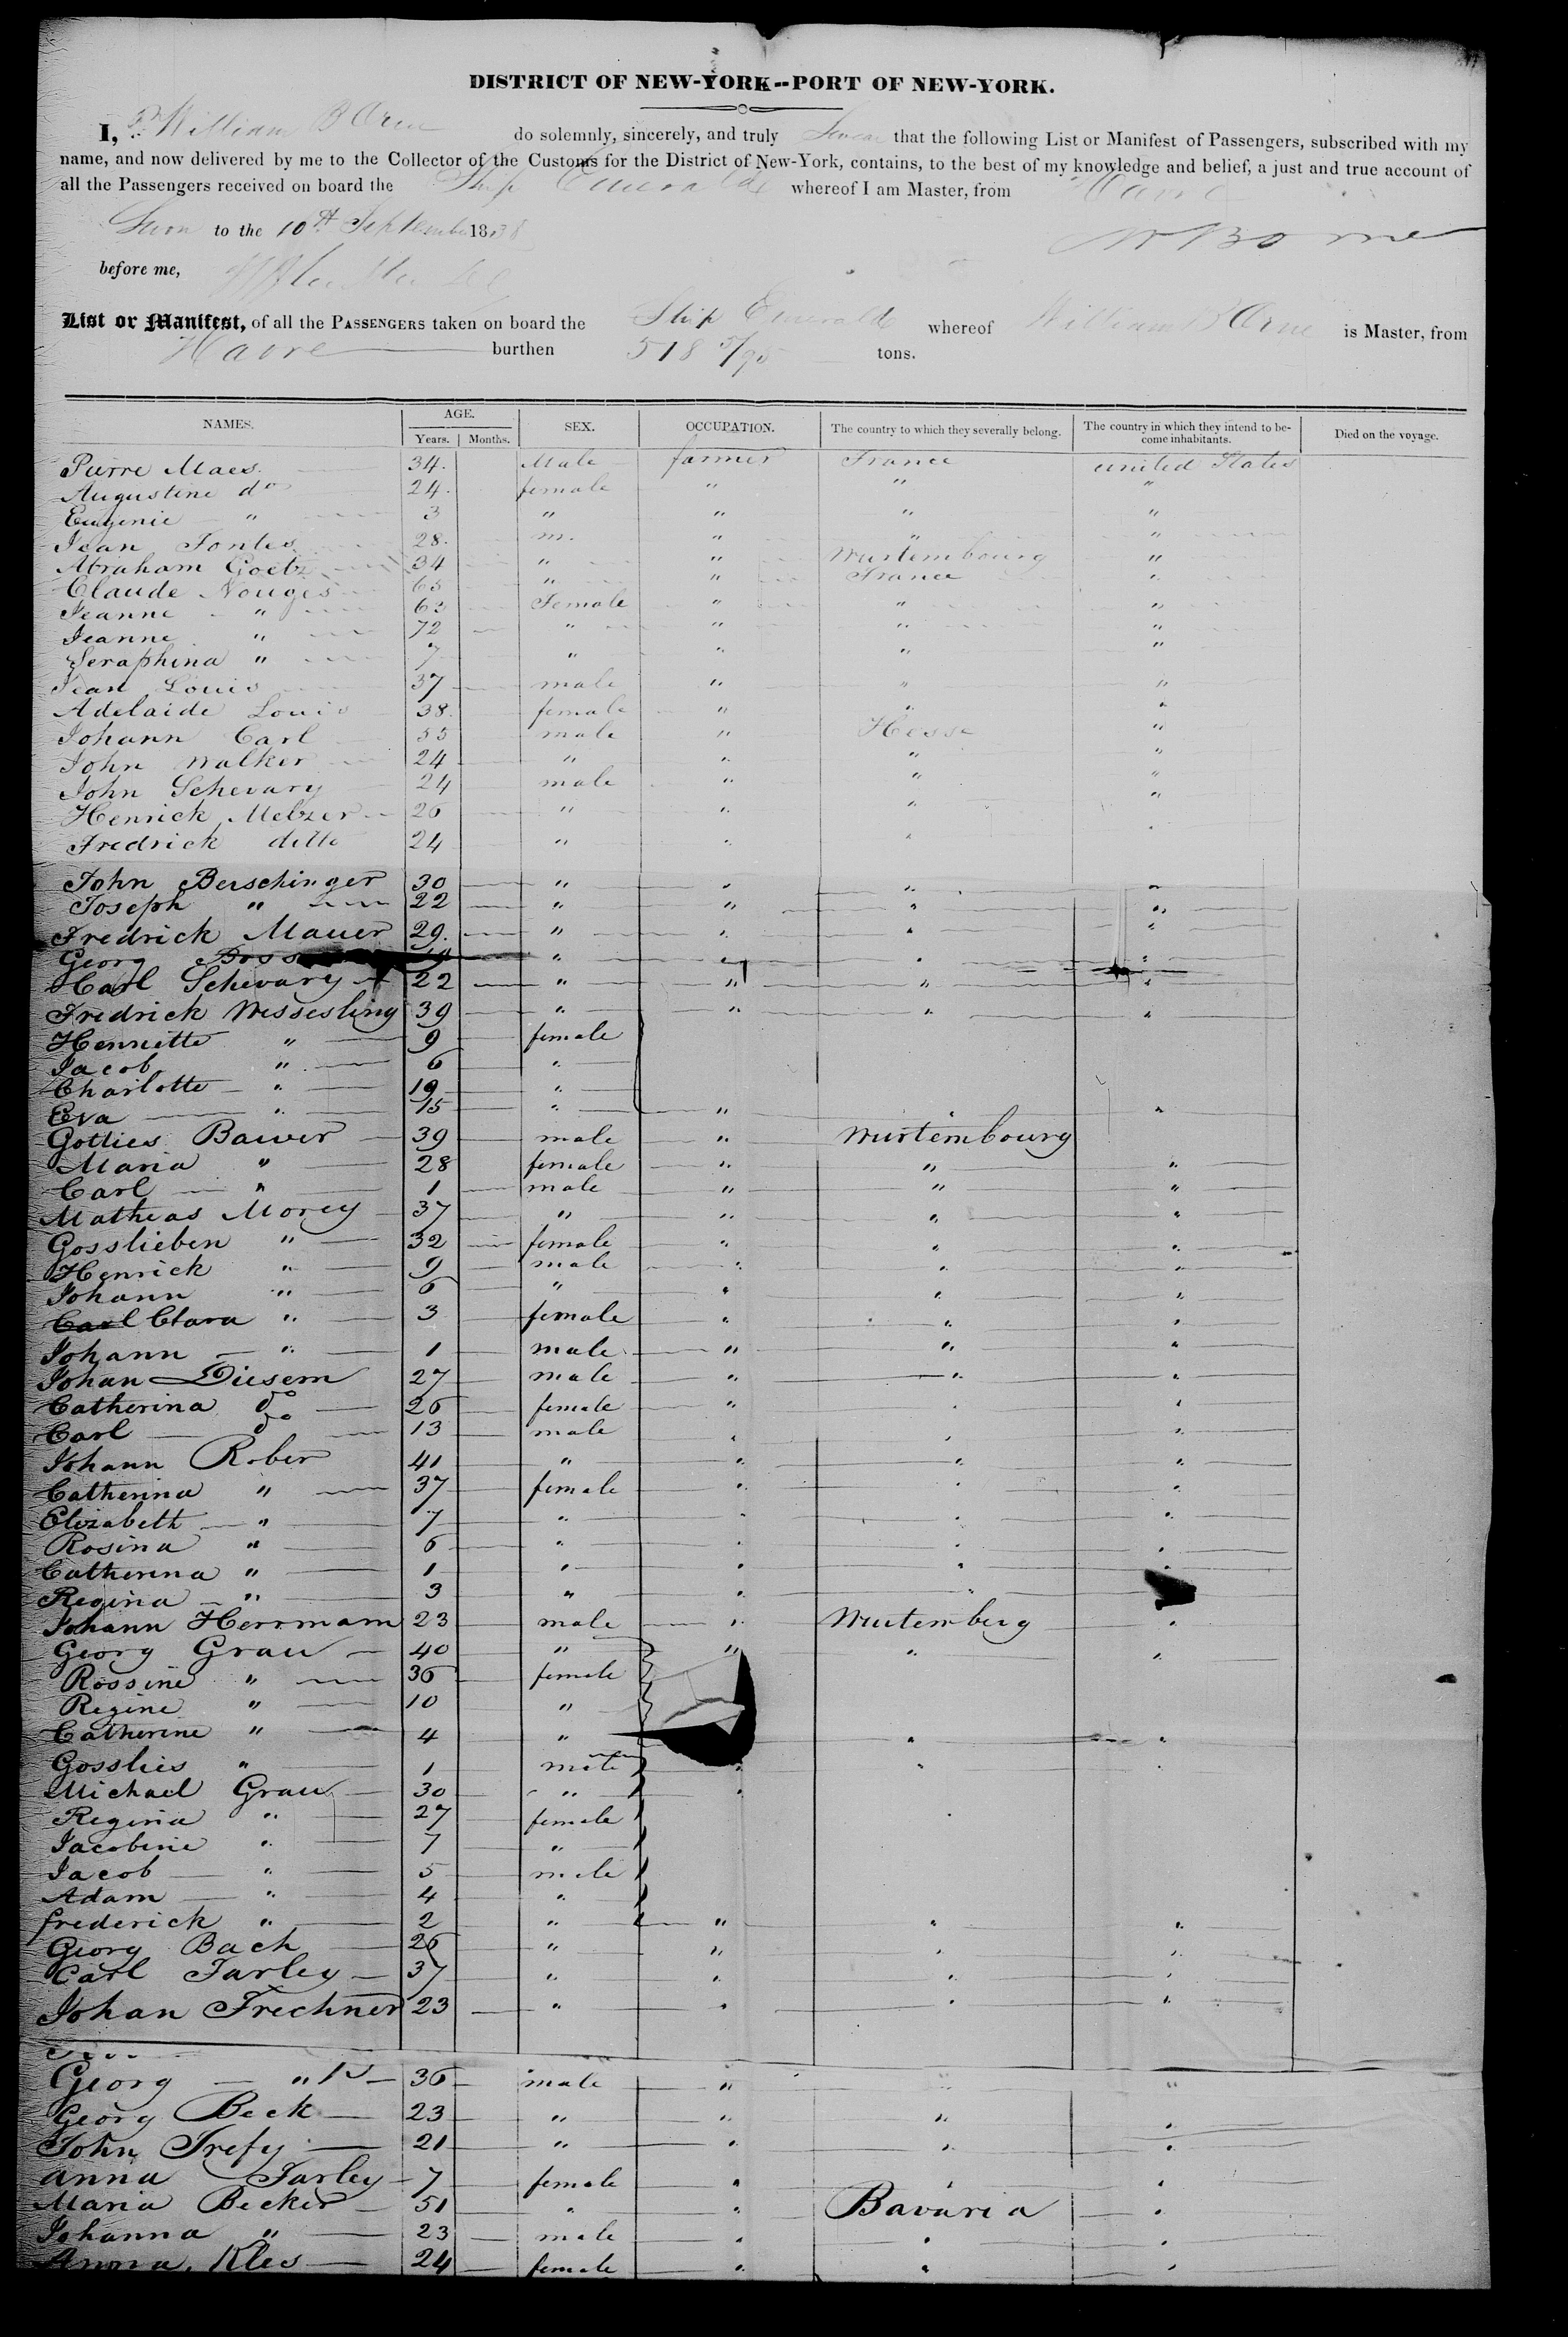 DISTRICT OF NEW-YORK--PORT OF NEW-YORK.
I, William B Orne do solemnly, sincerely, and truly Swear that the following List or Manifest of Passengers, subscribed with my
name, and now delivered by me to the Collector of the Customs for the District of New-York, contains, to the best of my knowledge and belief, a just and true account of
all the Passengers received on board the Ship Emerald whereof I am Master, from Havre
Sworn to the 10th September 1838
W B Orne
before me,
List or Manifest, of all the PASSENGERS taken on board the Ship Emerald whereof William B Orne is Master, from
Havre burthen 518 5/95 tons.
NAMES. AGE. SEX. OCCUPATION. The country to which they severally belong. The country in which they intend to be- Died on the voyage.
Years. Months. come inhabitants.
Pierre Maes 34. Male farmer France united States
Augustine do 24. female " " "
Eugenie " 3 " " " "
Jean Fontes 28. m. " " "
Abraham Goetz 34 " " Wurtembourg "
Claude Nouges 65 " " France "
Jeanne " 63 Female " " "
Jeanne " 72 " " " "
Seraphina " 7 " " " "
Jean Louis 37 male " " "
Adelaide Louis 38. female " " "
Johann Carl 55 male " Hesse "
John Walker 24 " " " "
John Schevary 24 male " " "
Henrick Melzer 26 " " " "
Fredrick ditto 24 " " " "
John Berschinger 30 " " " "
Joseph " 22 " " " "
Fredrick Mauer 29. " " " "
Georg " " " "
Carl Schevary 22 " " " "
Fredrick Wessesling 39 " " " "
Henriette " 9 female
Jacob " 6 "
Charlotte " 19 "
Eva " 15 " " " "
Gotlies Bauer 39 male " Wurtembourg
Maria " 28 female " " "
Carl " 1 male " " "
Matheas Morey 37 " " " "
Gosslieben " 32 female " " "
Henrick " 9 male " " "
Johann " 6 " " " "
Carl Clara " 3 female " " "
Johann " 1 male " " "
Johan Diesem 27 male " " "
Catherina do 26 female " " "
Carl do 13 male " " "
Johann Rober 41 " " " "
Catherina " 37 female " " "
Elizabeth " 7 " " " "
Rosina " 6 " " " "
Catherina " 1 " " " "
Regina " 3 " " "
Johann Herrmam 23 male " Wurtemberg "
Georg Grau 40 " " " "
Rossine " 36 female
Regine " 10 "
Catherine " 4 " " "
Gosslies " 1 male " "
Michael Grau 30 " "
Regina " 27 female
Jacobine " 7 "
Jacob " 5 male
Adam " 4 "
frederick " 2 " " " "
Georg Bach 26 " " " "
Carl Farley 37 " " " "
Johan Frechner 23 " " " "
Georg " 36 male " " "
Georg Beck 23 " " " "
John Trefy 21 " " " "
Anna Farley 7 female " " "
Maria Becker 51 " " Bavaria "
Johanna " 23 male " " "
Anna Kles 24 female " " "